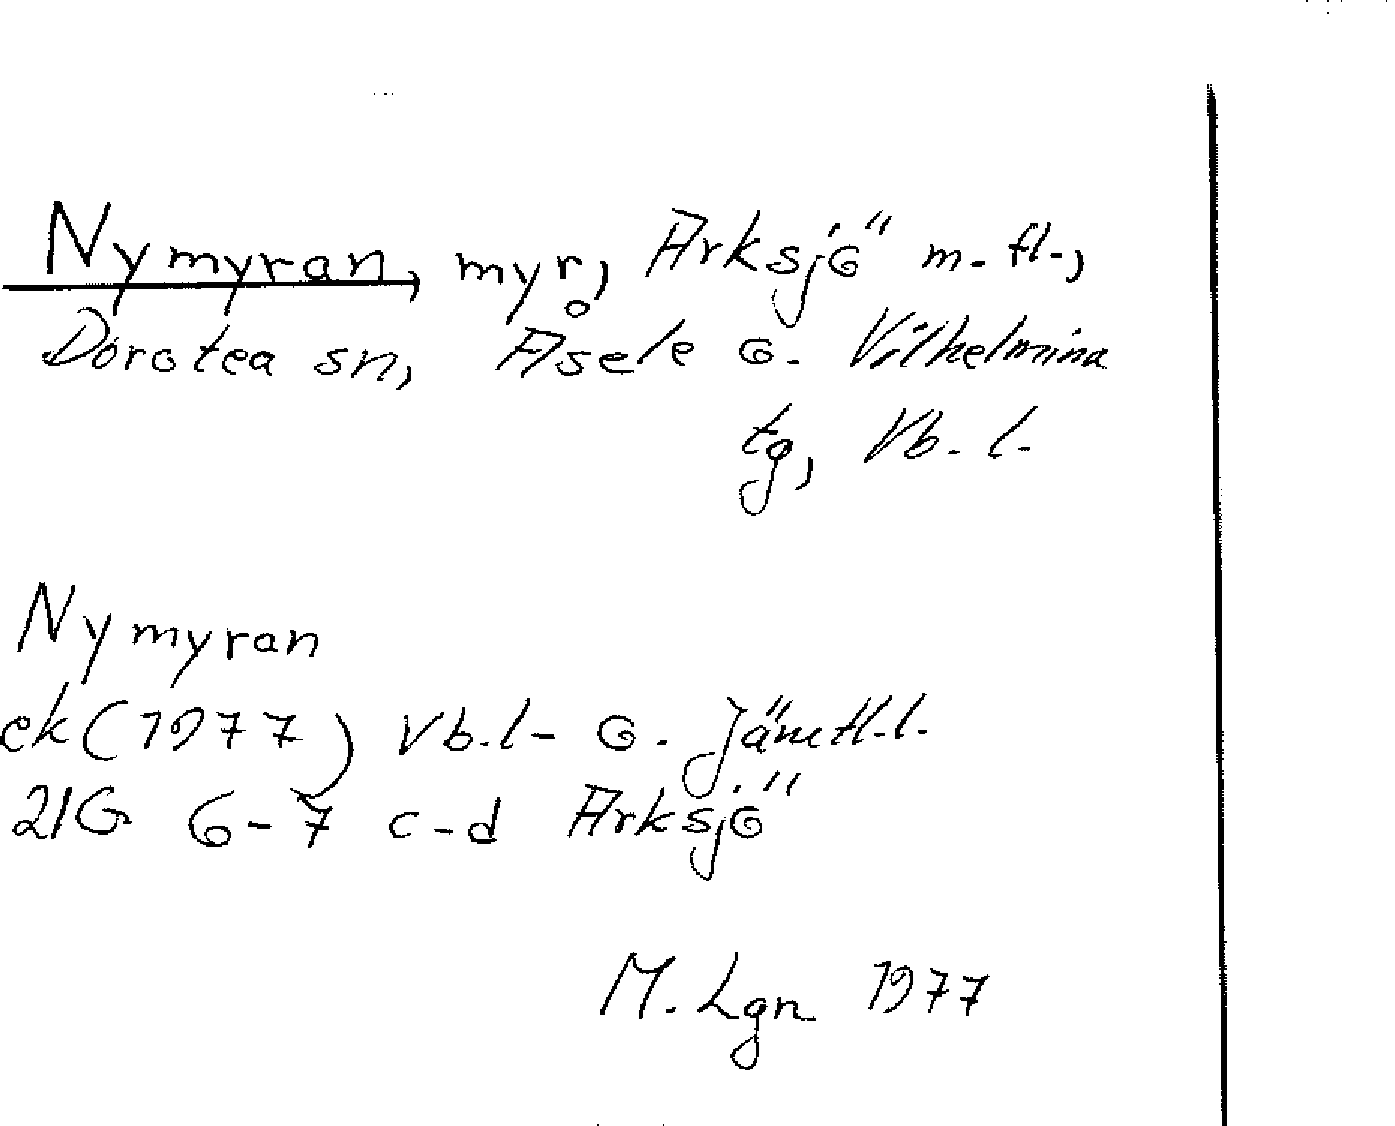 Nymyran, myr, Arksjö m. fl.,
Dorotea sn, Åsele o. Vilhelmina
tg, Vb. l.
Nymyran
ek (1977) Vb. l. o. Jämtl. l.
21G 6-7 c-d Arksjö
M. Lgn 1977